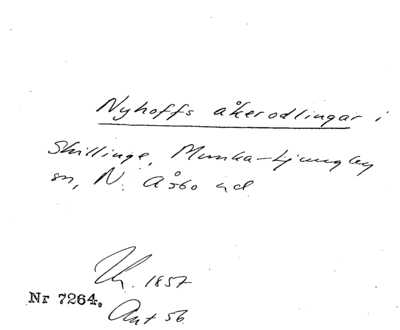 Nyhoffs åkerodlingar i
Skillinge, Munka-Ljungby
sn, N. Åsbo hd
Kr. 1857
Nr 7264.
Ant 56